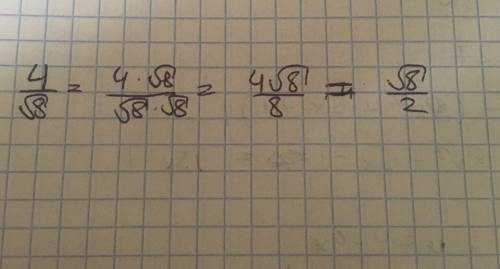 4/√8 = 4·√8/√8·√8 = 4√8/8 = √8/2